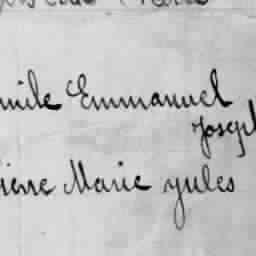 mile Emmanuel
Joseph
ierre Marie Jules